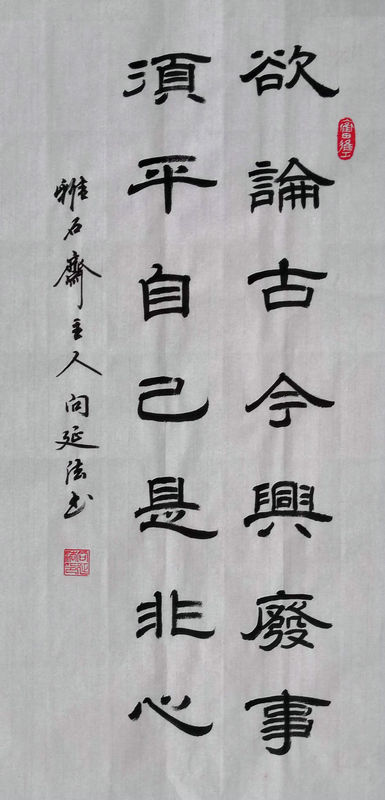 欲論古今興廢事
須平自己是非心
雅石齋主人向延法书